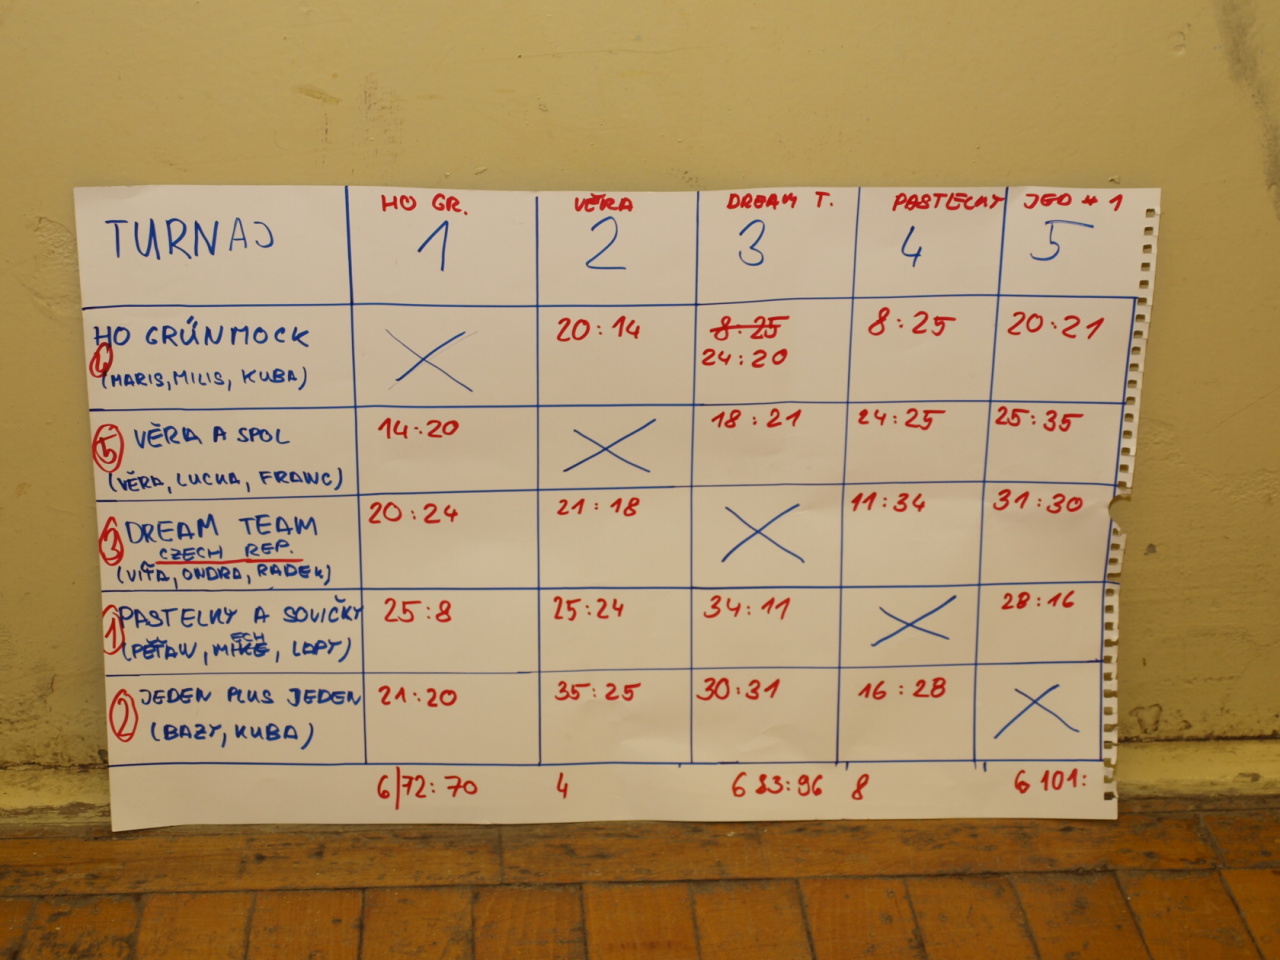 HO GR. VĚRA DREAM T. PASTELKY JED + 1
TURNAJ 1 2 3 4 5
HO GRÜNMOCK 20:14 8:25 8:25 20:21
4 24:20
(MARIS, MILIS, KUBA)
14:20 18:21 24:25 25:35
5 VĚRA A SPOL
(VĚRA, LUCKA, FRANC)
20:24 21:18 11:34 31:30
3 DREAM TEAM
CZECH REP.
(VÍŤA, ONDRA, RADEK)
PASTELKY A SOVIČKY 25:8 25:24 34:11 28:16
1 ECH
(PĚŤAW, MIKE, LAPY)
JEDEN PLUS JEDEN 21:20 35:25 30:31 16:28
2 (BAZY, KUBA)
6/72:70 4 6 83:96 8 6 101: